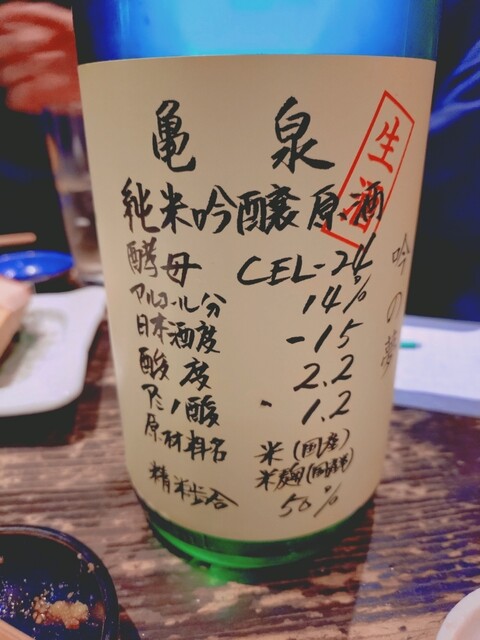 亀泉
純米吟醸原酒
酵母 CEL-24
アルコール分 14%
日本酒度 -15
酸度 2.2
アミノ酸 1.2
原材料名 米(国産)
米麹(国産米)
精米歩合 50%
生酒
吟の夢